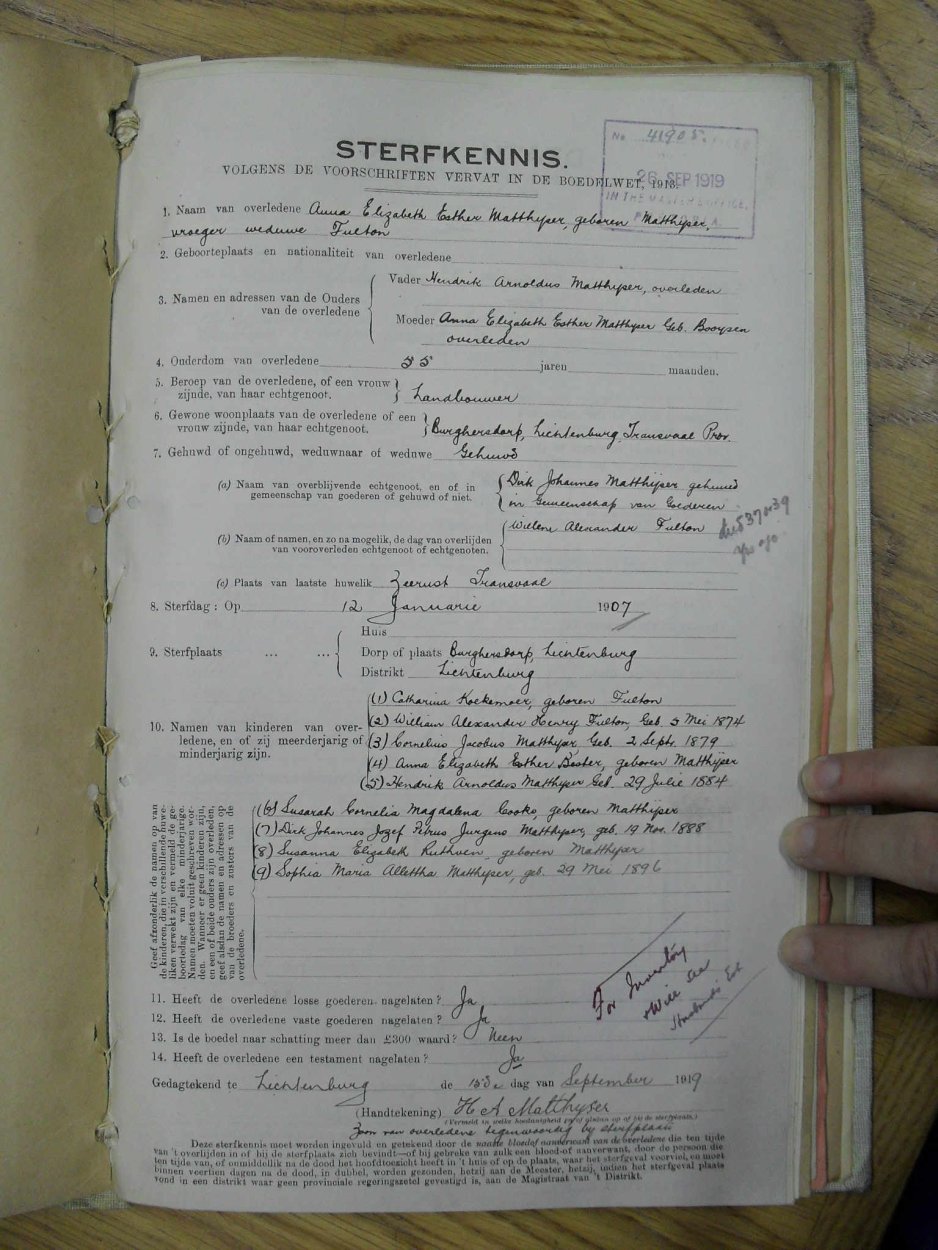 STERFKENNIS.
VOLGENS DE VOORSCHRIFTEN VERVAT IN DE BOEDELWET, 1913.
No 41905.
26 SEP 1919
IN THE MASTER'S OFFICE,
1. Naam van overledene Anna Elizabeth Esther Matthyser, geboren Matthyser,
vroeger weduwe Fulton
2. Geboorteplaats en nationaliteit van overledene
3. Namen en adressen van de Ouders
van de overledene
Vader Hendrik Arnoldus Matthyser, overleden
Moeder Anna Elizabeth Esther Matthyser Geb. Booysen
overleden
4. Ouderdom van overledene 55 jaren maanden.
5. Beroep van de overledene, of een vrouw
zijnde, van haar echtgenoot.
Landbouwer
6. Gewone woonplaats van de overledene of een
vrouw zijnde, van haar echtgenoot.
Burghersdorp, Lichtenburg, Transvaal Prov.
7. Gehuwd of ongehuwd, weduwnaar of weduwe Gehuwd
(a) Naam van overblijvende echtgenoot, en of in
gemeenschap van goederen of gehuwd of niet.
Dirk Johannes Matthyser gehuwd
in Gemeenschap van Goederen
(b) Naam of namen, en zo na mogelik, de dag van overlijden
van vooroverleden echtgenoot of echtgenoten.
Willem Alexander Fulton
37039
(c) Plaats van laatste huwelik Zeerust Transvaal
8. Sterfdag : Op 12 Januarie 1907
9. Sterfplaats ... ...
Huis
Dorp of plaats Burghersdorp, Lichtenburg
Distrikt Lichtenburg
10. Namen van kinderen van over-
ledene, en of zij meerderjarig of
minderjarig zijn.
(1) Catharina Koekemoer, geboren Fulton
(2) William Alexander Henry Fulton, Geb. 5 Mei 1874
(3) Cornelius Jacobus Matthyser Geb. 2 Sept. 1879
(4) Anna Elizabeth Esther Bester, geboren Matthyser
(5) Hendrik Arnoldus Matthyser Geb. 29 Julie 1884
(6) Susarah Cornelia Magdalena Cooks, geboren Matthyser
(7) Dirk Johannes Jozef Petrus Jurgens Matthyser, geb. 19 Nov. 1888
(8) Susanna Elizabeth Ruthven geboren Matthyser
(9) Sophia Maria Allettha Matthyser, geb. 29 Mei 1896
Geef afzonderlik de namen op van
de kinderen, die in verschillende huwe-
liken verwekt zijn en vermeld de ge-
boortedag van elke minderjarige.
Namen moeten voluit geschreven wor-
den. Wanneer er geen kinderen zijn,
en een of beide ouders zijn overleden,
geef alsdan de namen en adressen op
van de broeders en zusters van de
overledene.
11. Heeft de overledene losse goederen nagelaten ? Ja
12. Heeft de overledene vaste goederen nagelaten ? Ja
13. Is de boedel naar schatting meer dan £300 waard ? Neen
14. Heeft de overledene een testament nagelaten ? Ja
For Inventory
& Will see
Husband's Est
Gedagtekend te Lichtenburg de 15de dag van September 1919
(Handtekening) H A Matthyser
(Vermeld in welke hoedanigheid en of alsdan op of bij de sterfplaats.)
Zoon van overledene tegenwoordig by sterfplaats
Deze sterfkennis moet worden ingevuld en getekend door de naaste bloedaanverwant van de overledene die ten tijde
van 't overlijden in of bij de sterfplaats zich bevindt—of bij gebreke van zulk een bloed-of aanverwant, door de persoon die
ten tijde van, of onmiddellik na de dood het hoofdtoezicht heeft in 't huis of op de plaats, waar het sterfgeval voorviel, en moet
binnen veertien dagen na de dood, in dubbel, worden gezonden, hetzij aan de Meester, hetzij, indien het sterfgeval plaats
vond in een distrikt waar geen provinciale regeringszetel gevestigd is, aan de Magistraat van 't Distrikt.